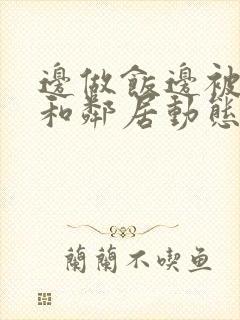 邊做飯邊被
和鄰居動態
蘭蘭不喫魚